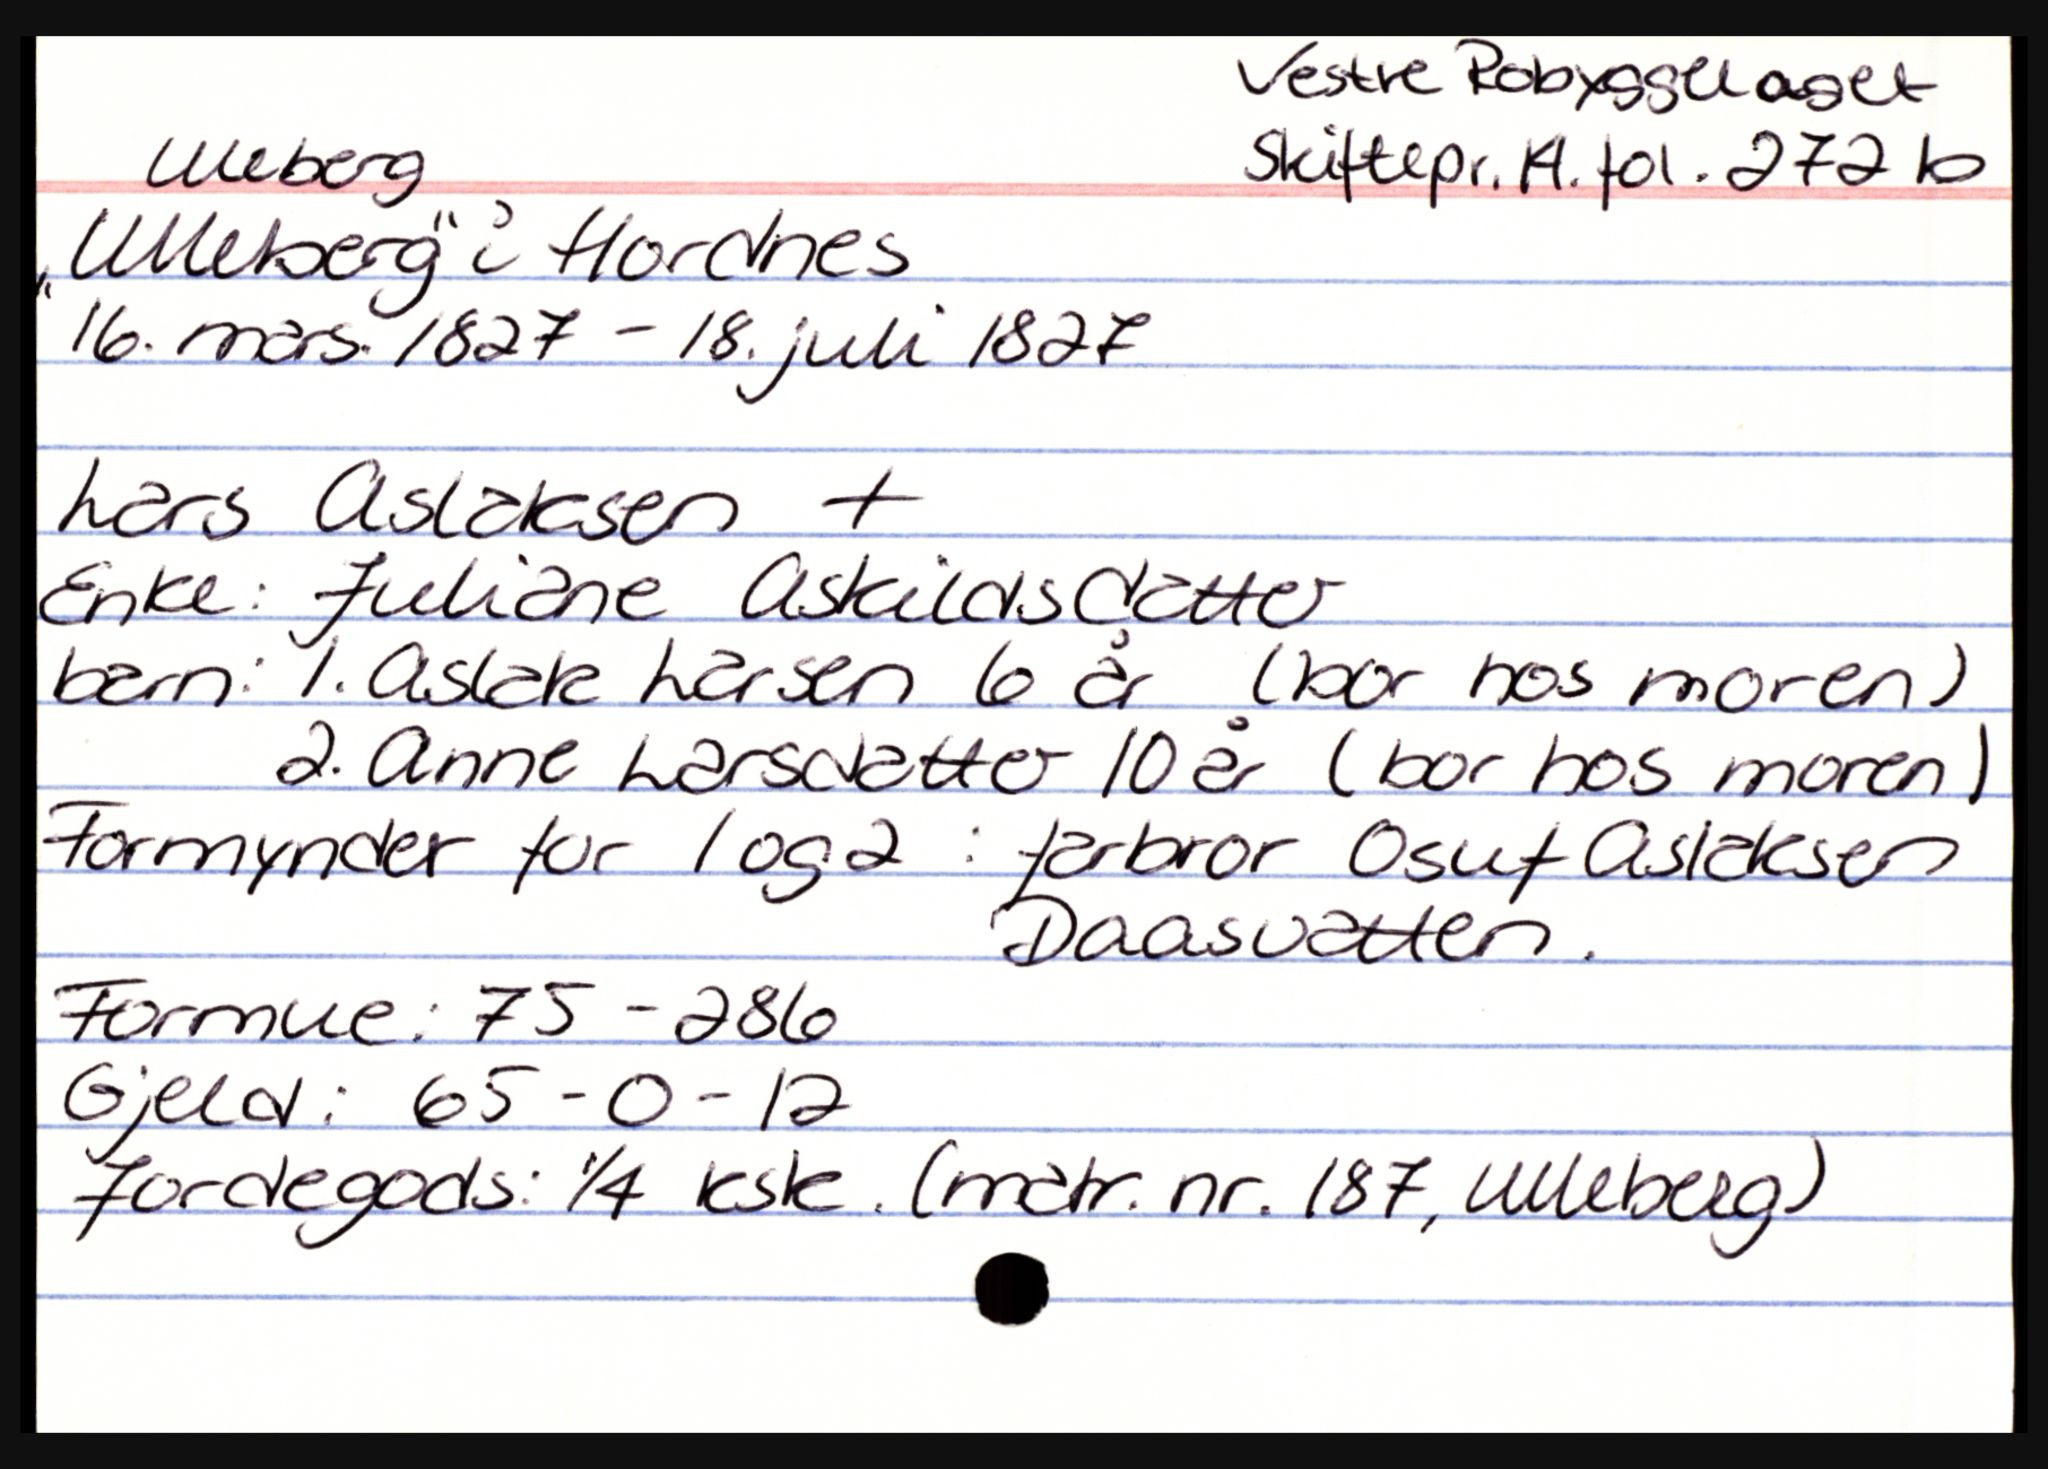 Vestre Robyggelaget
Skiftepr. 14. fol. 272 b
Uleberg
"Ulleberg" i Hordnes
16. mars. 1827 - 18. juli 1827
Lars Aslaksen +
Enke: Juliane Askildsdatter
barn: 1. Aslak Larsen 6 år (bor hos moren)
2. Anne Larsdatter 10 år (bor hos moren)
Formynder for 1 og 2 : farbror Osuf Aslaksen
Daasvatten.
Formue: 75 - 286
Gjeld: 65 - 0 - 12
Jordegods: 1/4 ksk. (matr. nr. 187, Ulleberg)